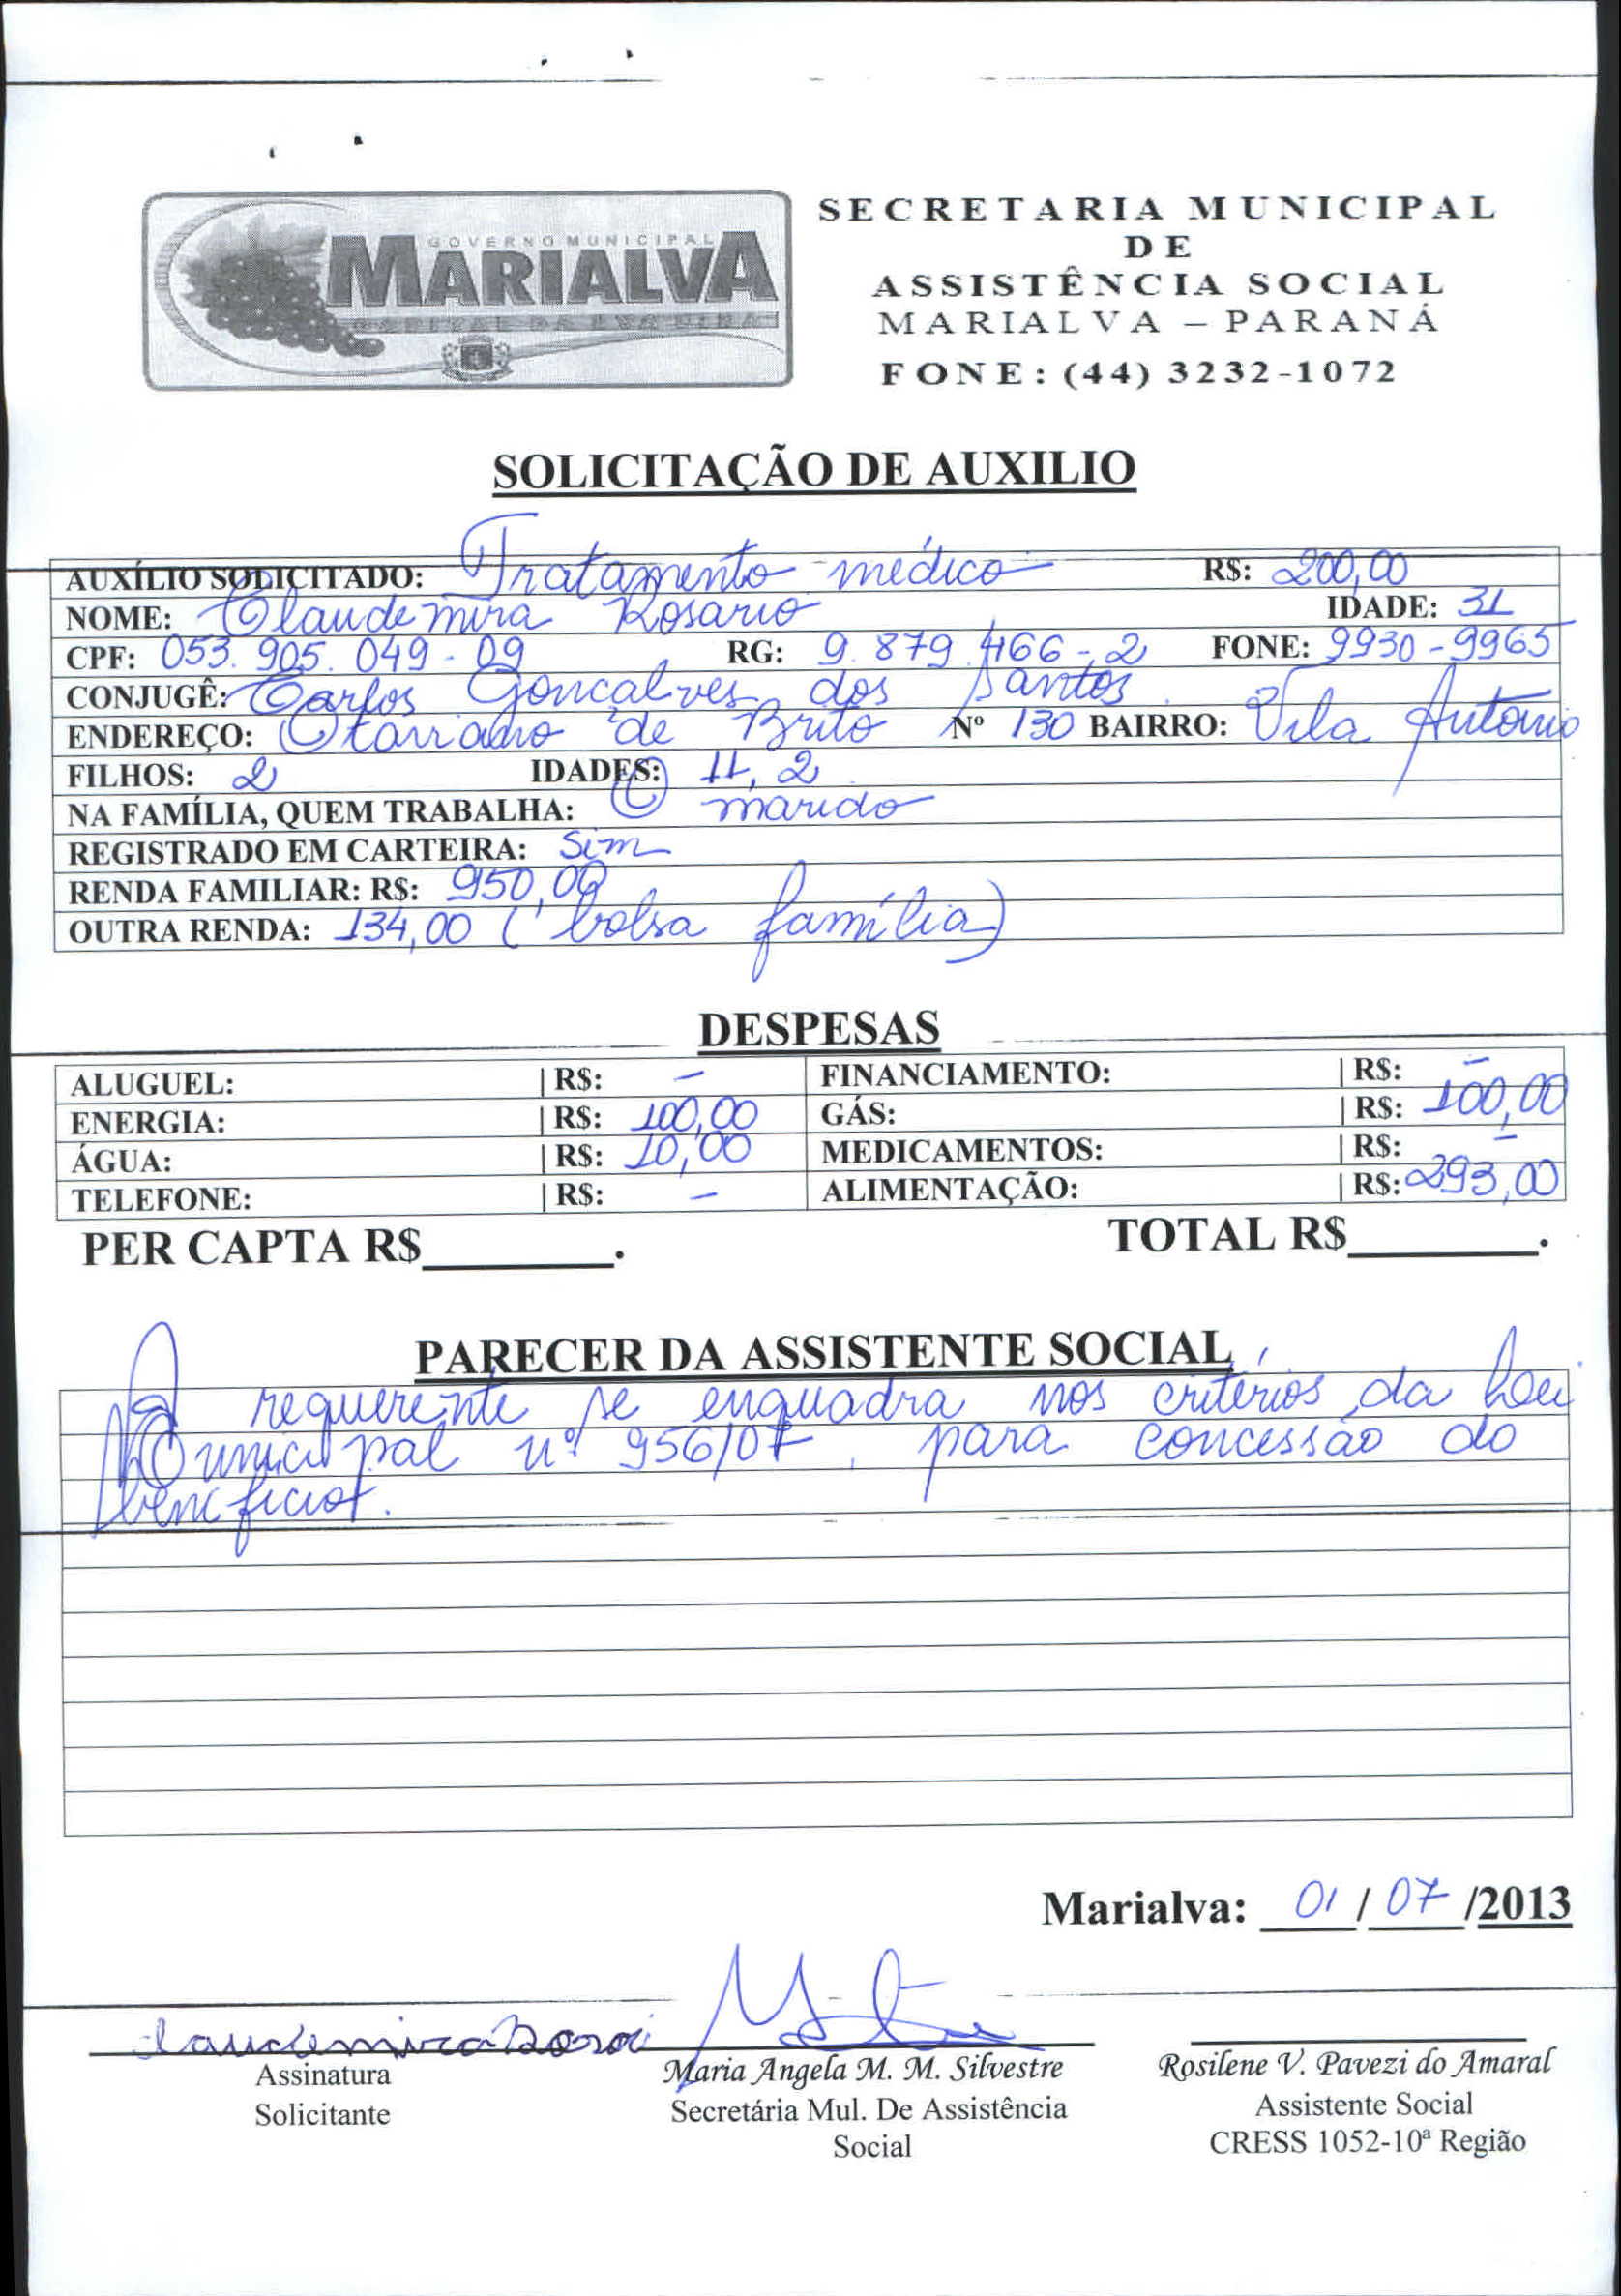 GOVERNO MUNICIPAL
MARIALVA
CAPITAL DA UVA FINA
SECRETARIA MUNICIPAL
DE
ASSISTÊNCIA SOCIAL
MARIALVA – PARANÁ
FONE: (44) 3232-1072
SOLICITAÇÃO DE AUXILIO
AUXÍLIO SOLICITADO: Tratamento médico R$: 200,00
NOME: Claudemira Rosario IDADE: 31
CPF: 053.905.049-09 RG: 9.879.466-2 FONE: 9930-9965
CONJUGÊ: Carlos Goncalves dos Santos
ENDEREÇO: Otaviano de Brito Nº 130 BAIRRO: Vila Antonio
FILHOS: 2 IDADES: 11, 2
NA FAMÍLIA, QUEM TRABALHA: O marido
REGISTRADO EM CARTEIRA: Sim
RENDA FAMILIAR: R$: 950,00
OUTRA RENDA: 134,00 (bolsa família)
DESPESAS
ALUGUEL: | R$: - FINANCIAMENTO: | R$: -
ENERGIA: | R$: 100,00 GÁS: | R$: 100,00
ÁGUA: | R$: 10,00 MEDICAMENTOS: | R$: -
TELEFONE: | R$: - ALIMENTAÇÃO: | R$: 293,00
PER CAPTA R$________. TOTAL R$________.
PARECER DA ASSISTENTE SOCIAL
A requerente se enquadra nos critérios da Lei
Municipal nº 956/07, para concessão do
beneficio.
Marialva: 01/07/2013
Claudemira Rosari
Assinatura
Solicitante
Maria Angela M. M. Silvestre
Secretária Mul. De Assistência
Social
Rosilene V. Pavezi do Amaral
Assistente Social
CRESS 1052-10ª Região